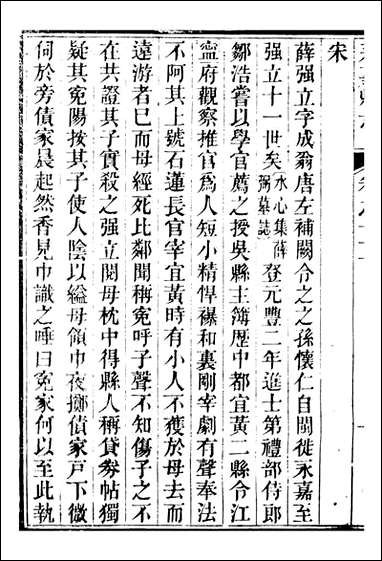 宋
薛强立字成翁唐左補闕令之之孫懷仁自閩徙永嘉至
强立十一世矣水心集薛弼墓誌登元豐二年進士第禮部侍郎
鄒浩嘗以學官薦之授吳縣主簿歷中都宜黃二縣令江
寧府觀察推官爲人短小精悍襮和裏剛宰劇有聲奉法
不阿其上號石蓮長官宰宜黃時有小人不獲於母去而
遠游者已而母經死比鄰聞稱冤呼子聲不知傷子之不
在共證其子實殺之强立閱母枕中得縣人稱貸券帖獨
疑其冤陽按其子使人陰以縊母領巾夜擲債家戸下微
伺於旁債家晨起然香見巾識之唾曰冤家何以至此執